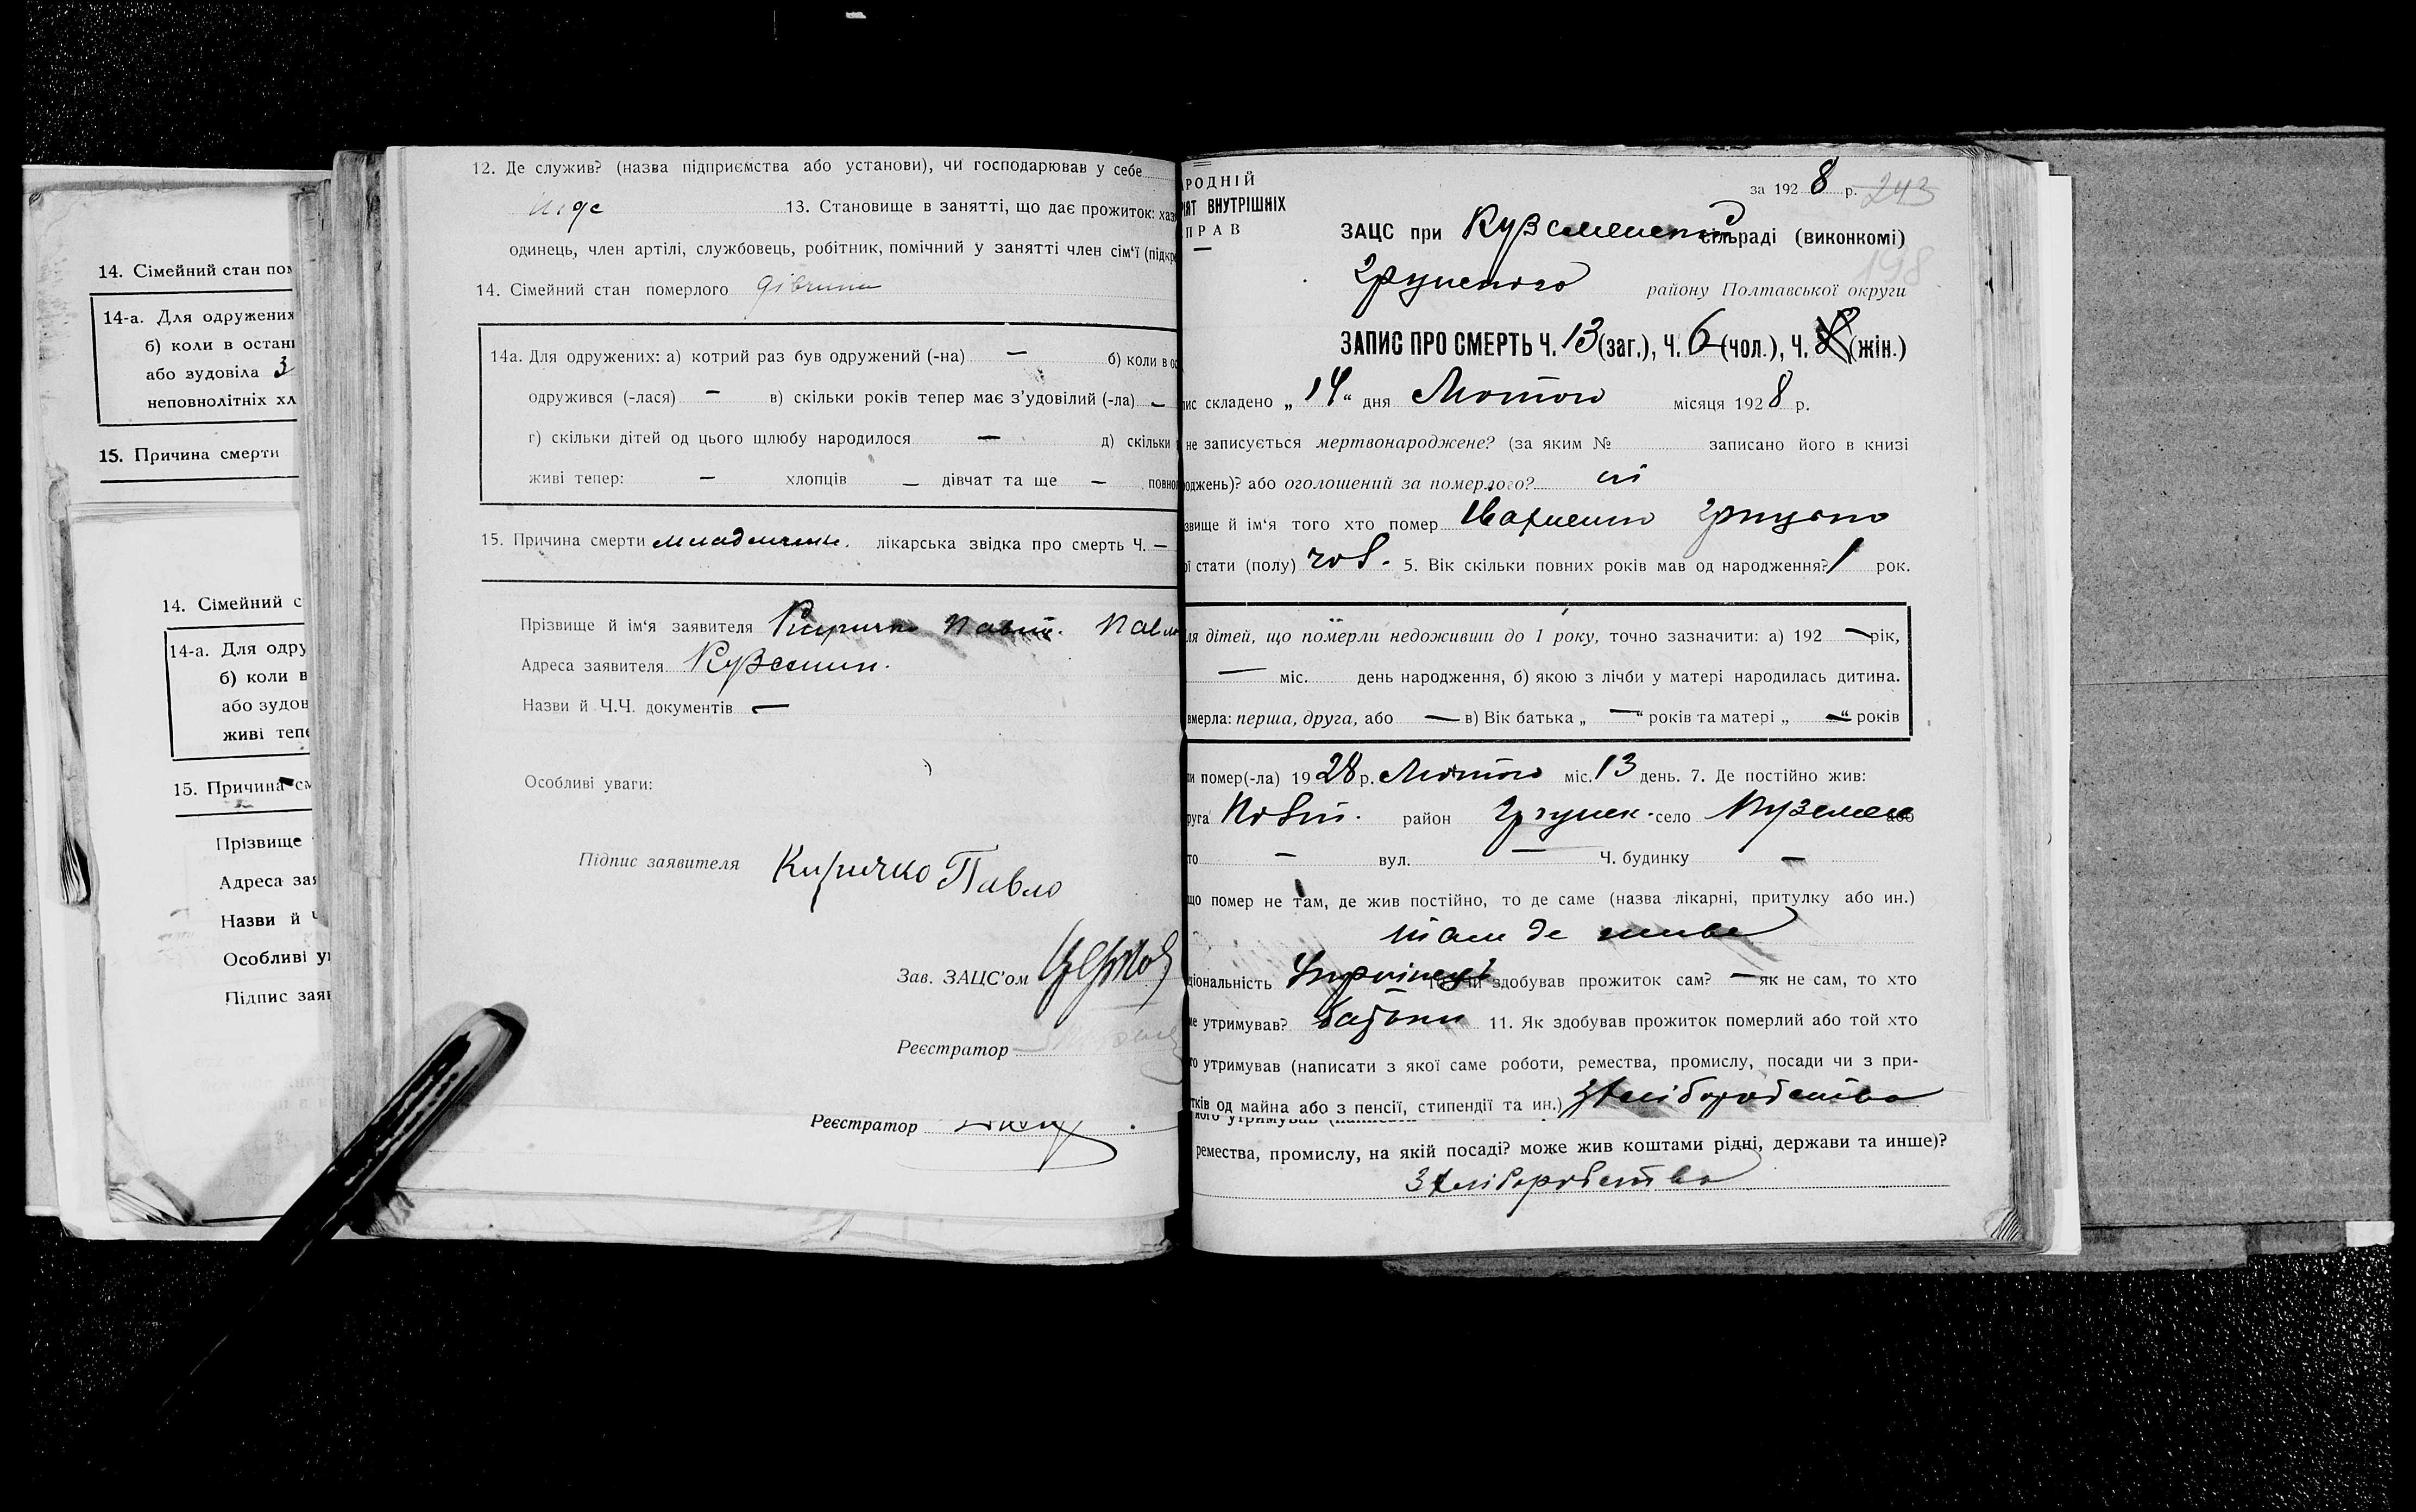 14. Сімейний стан пом
14-а. Для одружених
б) коли в остан
або зудовіла 3
неповнолітніх хл
15. Причина смерти
14. Сімейний с
14-а. Для одру
б) коли в
або зудов
живі тепе
15. Причина см
Прізвище
Адреса зая
Назви й Ч
Особливі ув
Підпис заяв
12. Де служив? (назва підприємства або установи), чи господарював у себе
13. Становище в занятті, що дає прожиток: хаз
одинець, член артілі, службовець, робітник, помічний у занятті член сім'ї (підкр
14. Сімейний стан померлого дівчина
14а. Для одружених: а) котрий раз був одружений (-на) — б) коли в ос
одружився (-лася) — в) скільки років тепер має з'удовілий (-ла) —
г) скільки дітей од цього шлюбу народилося — д) скільки
живі тепер: — хлопців — дівчат та ще — повно
15. Причина смерти лікарська звідка про смерть Ч. —
Прізвище й ім'я заявителя Киричко
Адреса заявителя Куземин.
Назви й Ч.Ч. документів —
Особливі уваги:
Підпис заявителя Киричко Павло
Зав. ЗАЦС'ом
Реєстратор
Реєстратор
РОДНІЙ
ІЯТ ВНУТРІШНІХ
ПРАВ
за 1928 р. 243
ЗАЦС при сільраді (виконкомі)
198
району Полтавської округи
ЗАПИС ПРО СМЕРТЬ Ч. 13 (заг.), Ч. 6 (чол.), Ч. (жін.)
пис складено „14“ дня Лютого місяця 1928 р.
не записується мертвонароджене? (за яким № записано його в книзі
роджень)? або оголошений за померлого? ні
звище й ім'я того хто помер
ої стати (полу) чов. 5. Вік скільки повних років мав од народження? 1 рок.
ля дітей, що померли недоживши до 1 року, точно зазначити: а) 192 — рік,
— міс. день народження, б) якою з лічби у матері народилась дитина.
вмерла: перша, друга, або — в) Вік батька „—“ років та матері „—“ років
ли помер(-ла) 1928 р. Лютого міс. 13 день. 7. Де постійно жив:
руга район село або
то — вул. — Ч. будинку —
що помер не там, де жив постійно, то де саме (назва лікарні, притулку або ин.)
там де живе
ціональність Українець 10. Чи здобував прожиток сам? — як не сам, то хто
ме утримував? батьки 11. Як здобував прожиток померлий або той хто
го утримував (написати з якої саме роботи, ремества, промислу, посади чи з при-
тків од майна або з пенсії, стипендії та ин.) з хліборобства
ремества, промислу, на якій посаді? може жив коштами рідні, держави та инше)?
З хліборобства